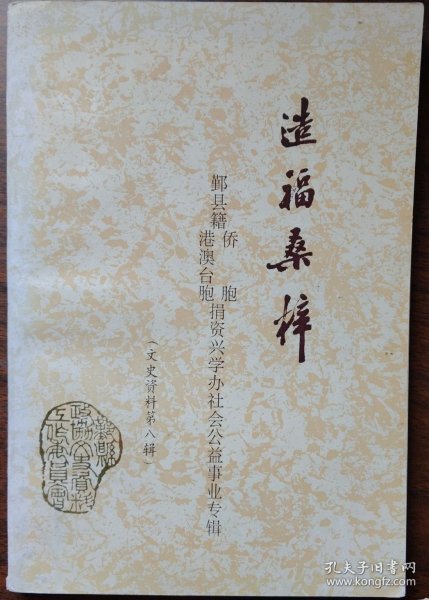 造福桑梓
鄞县籍侨胞
港澳台胞捐资兴学办社会公益事业专辑
(文史资料第八辑)
鄞县
政协文史资料
工作委員會
孔夫子旧书网
www.kongfz.com